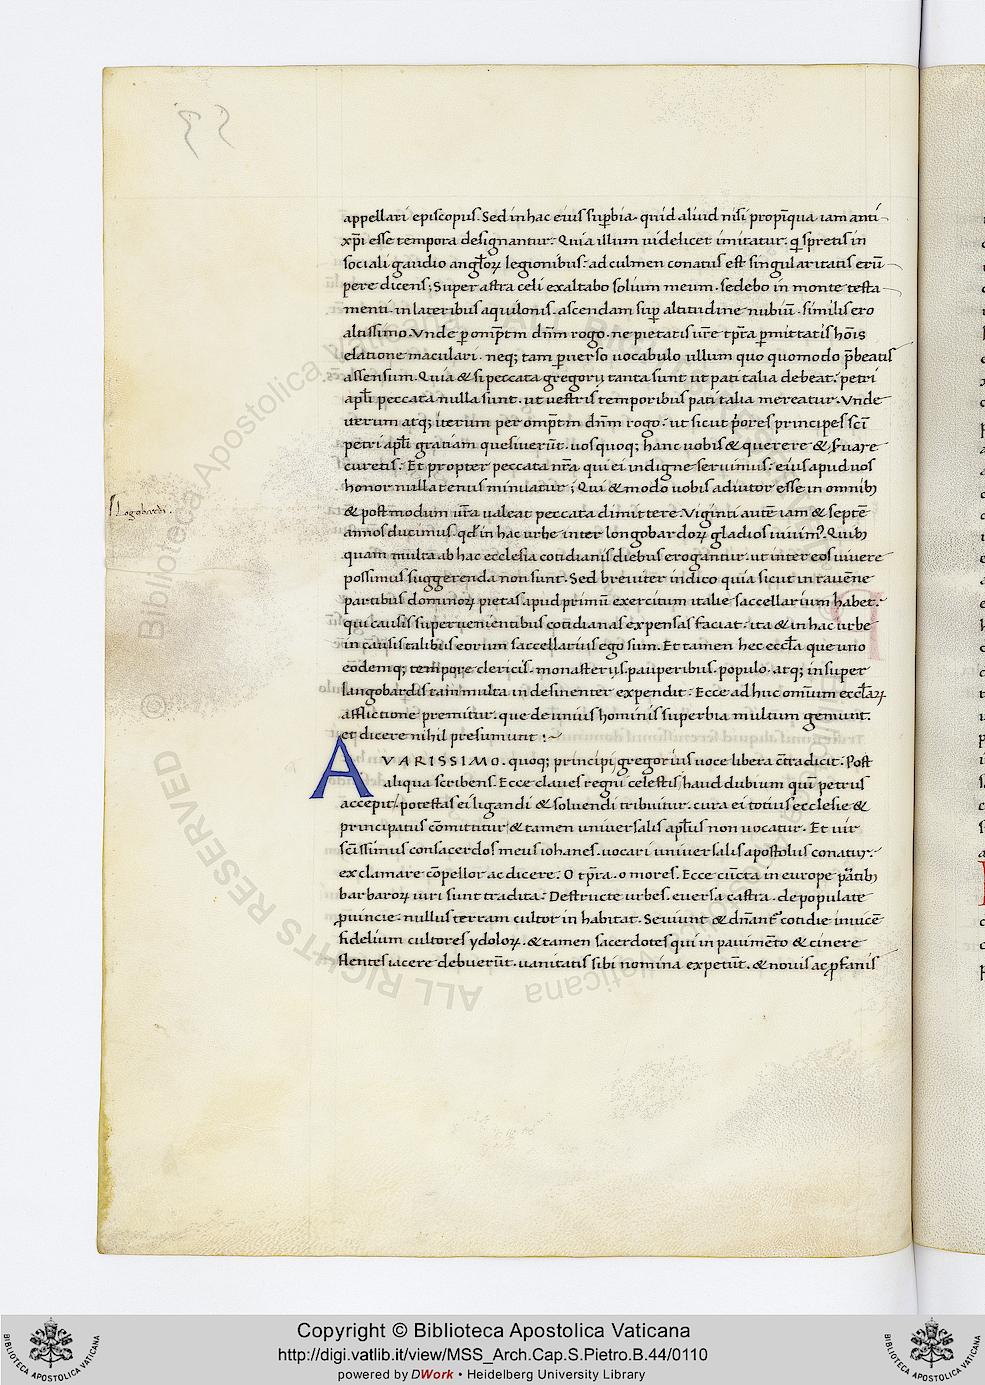 appellari episcopus. Sed in hac eius suꝑbia. quid aliud nisi propiq̅ua iam anti
xpi̅ esse tempora designantur: Quia illum uidelicet imitatur. q spretis in
sociali gaudio angl̅oꝝ legionibus: ad culmen conatus est singularitatis eru̅
pere dicens; Super astra celi exaltabo solium meum. sedebo in monte testa
menti. in lateribus aquilonis. ascendam suꝑ altitudine nubiu̅. similis ero
altissimo. Vnde ꝑ omp̅tm dn̅m rogo. ne pietatis ur̅e tp̅ra ꝑmittatis ho̅is
elatione maculari. neq; tam ꝑuerso uocabulo ullum quo quomodo p̅beatis
assensum. Quia & si peccata gregorij tanta sunt ut pati talia debeat: petri
apl̅i peccata nulla sunt. ut uestris temporibus pati talia mereatur. Vnde
iterum atq; iterum per omp̅tm dn̅m rogo: ut sicut p̍ores principes sc̅i
petri apl̅i gratiam quesiueru̅t. uos quoq; hanc uobis & querere & s̅uare
curetis: Et propter peccata nr̅a qui ei indigne seruimus: eius apud uos
honor nullatenus minuatur; Qui & modo uobis adiutor esse in omnibꝫ
& post modum ur̅a ualeat peccata dimittere. Viginti aute̅ iam & septe̅
annos ducimus. qd̅ in hac urbe inter longobardoꝝ gladios uiuim᾽. Quibꝫ
quam multa ab hac ecclesia cotidianis diebus erogantur. ut inter eos uiuere
possimus suggerenda non sunt. Sed breuiter indico quia sicut in raue̅ne
partibus dominoꝝ pietas apud primu̅ exercitum italie saccellarium habet:
qui causis superuenientibus cotidianas expensas faciat: ita & in hac urbe
in causis talibus eorum saccellarius ego sum. Et tamen hec eccl̅a que uno
eodemq; tempore clericis. monasterijs. pauperibus. populo. atq; insuper
langobardis tam multa indesinenter expendit: Ecce ad huc omnium eccl̅aꝝ
afflictione premitur. que de unius hominis superbia multum gemunt.
et dicere nihil presumunt :~
Logobardi.
AVARISSIMO. quoq; principi gregorius uoce libera co̅tradicit: Post
aliqua scribens. Ecce claues regni celestis haud dubium quin petrus
accepit. potestas ei ligandi & soluendi tribuitur. cura ei totius ecclesie &
principatus co̅mititur & tamen uniuersalis apl̅us non uocatur. Et uir
sc̅issimus consacerdos meus iohanes. uocari uniuersalis apostolus conatur:
exclamare co̅pellor ac dicere: O tp̅ra. o mores. Ecce cu̅cta in europe pa̅tibꝫ
barbaroꝝ iuri sunt tradita: Destructe urbes. euersa castra. depopulate
ꝓuincie. nullus terram cultor inhabitat. Seuiunt & dn̅ant᾽ cotidie in nece̅
fidelium cultores ydoloꝝ. & tamen sacerdotes qui in pauime̅to & cinere
flentes iacere debueru̅t. uanitatis sibi nomina expetu̅t. & nouis ac ꝓfanis
Copyright © Biblioteca Apostolica Vaticana
http://digi.vatlib.it/view/MSS_Arch.Cap.S.Pietro.B.44/0110
powered by DWork • Heidelberg University Library
BIBLIOTECA APOSTOLICA VATICANA
BIBLIOTECA APOSTOLICA VATICANA
© Biblioteca Apostolica Vaticana
ALL RIGHTS RESERVED